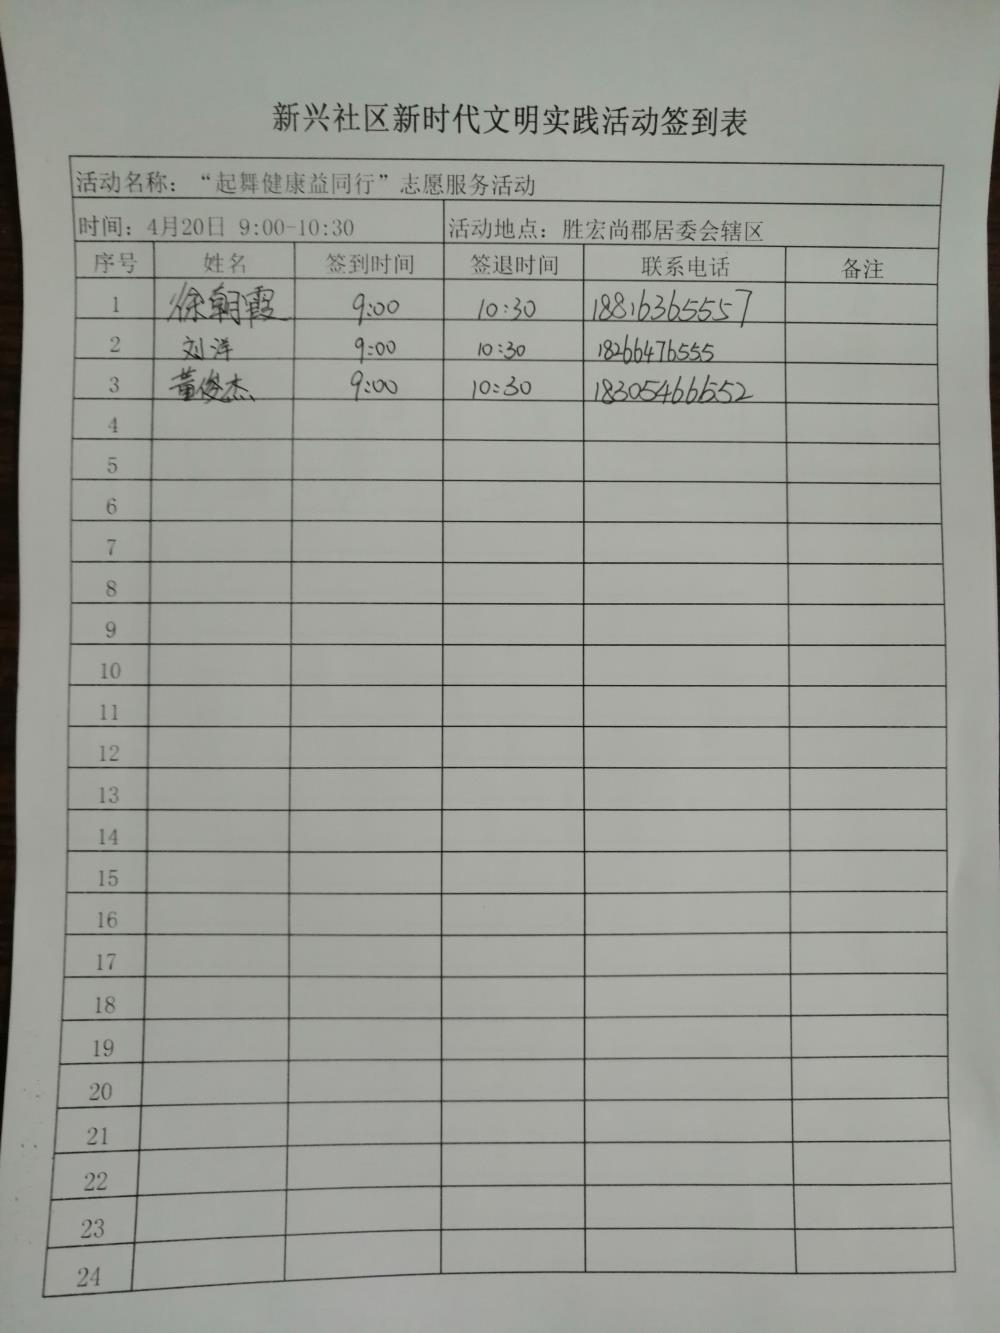 新兴社区新时代文明实践活动签到表
活动名称：“起舞健康益同行”志愿服务活动
时间：4月20日 9:00-10:30 活动地点：胜宏尚郡居委会辖区
序号 姓名 签到时间 签退时间 联系电话 备注
1 徐朝霞 9:00 10:30 18816365557
2 刘洋 9:00 10:30 18266476555
3 董俊杰 9:00 10:30 18305466552
4
5
6
7
8
9
10
11
12
13
14
15
16
17
18
19
20
21
22
23
24